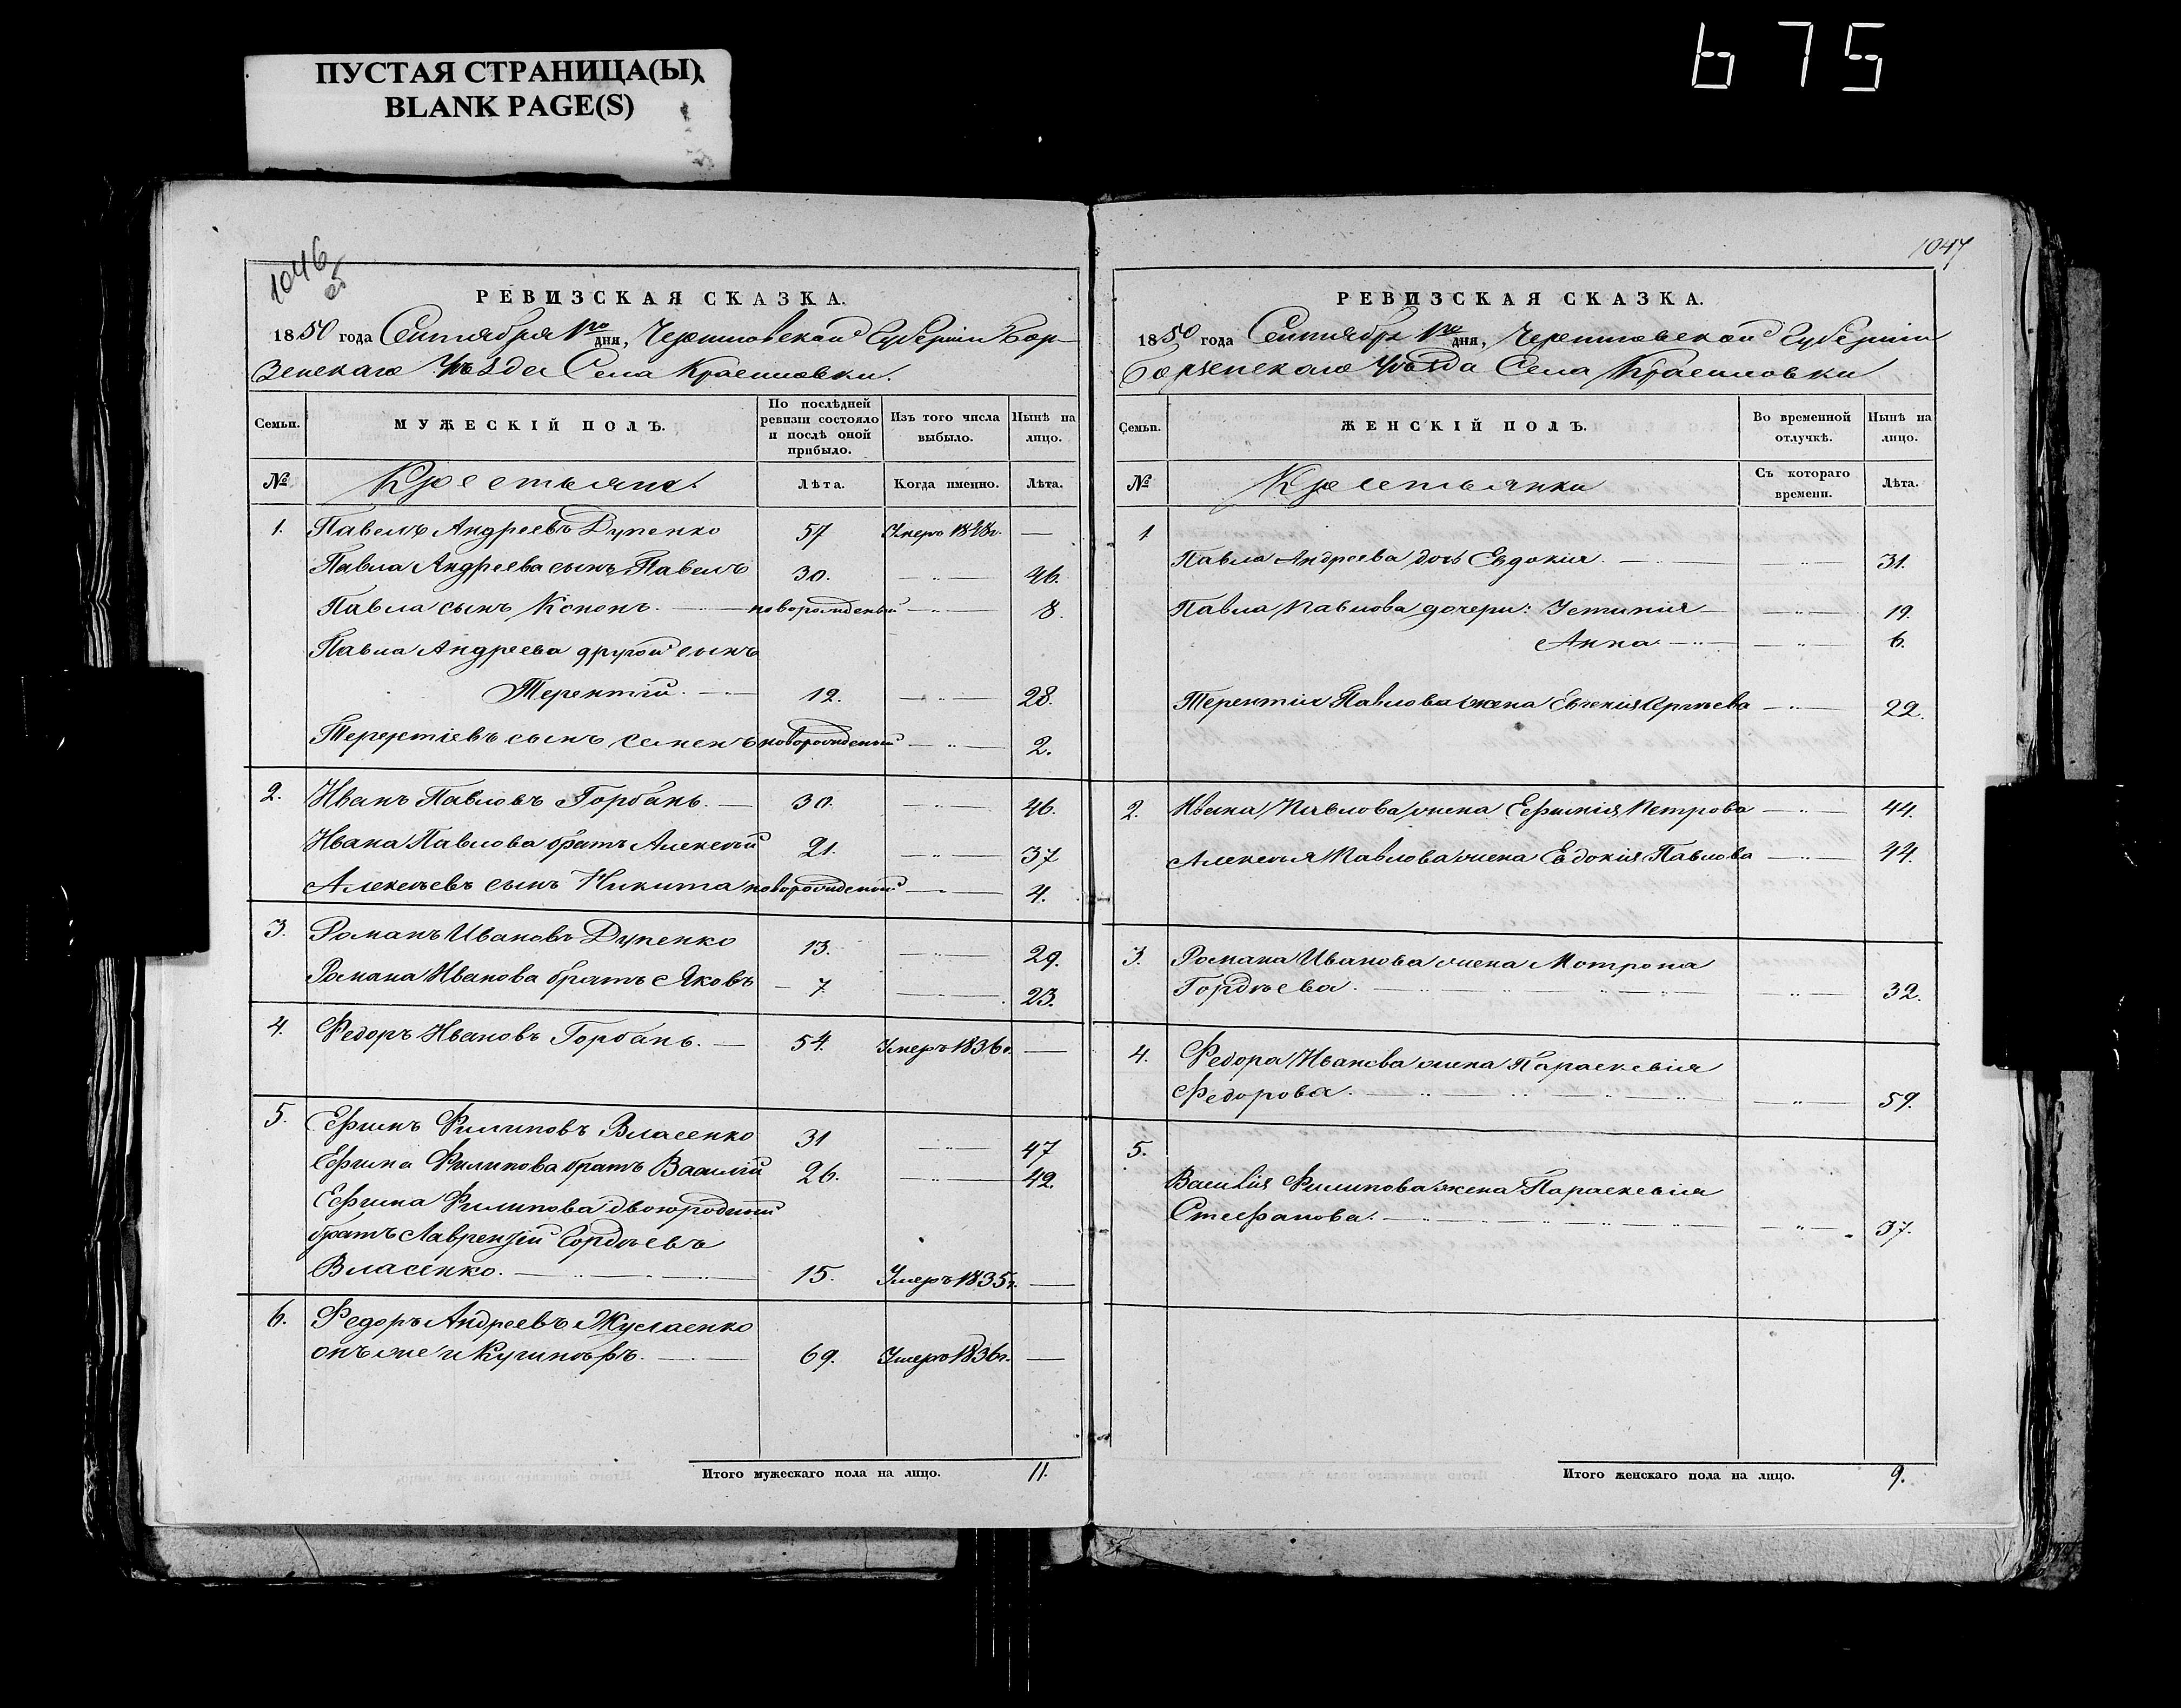 ПУСТАЯ СТРАНИЦА(Ы)
BLANK PAGE(S)
675
1046
об
РЕВИЗСКАЯ СКАЗКА.
1850 года Сентября 1го дня, Черниговской Губернiи Бор-
зенскаго Уѣзда Села Красиловки.
Семьи.
МУЖЕСКІЙ ПОЛЪ.
По послѣдней ревизіи состояло и послѣ оной прибыло.
Изъ того числа выбыло.
Нынѣ на лицо.
№
Крестьяне.
Лѣта.
Когда именно.
Лѣта.
1. Павелъ Андреевъ Дупенко 57 Умеръ 1848г. —
Павла Андреева сынъ Павелъ 30. — 46.
Павла сынъ Кононъ. — новорожденый — 8.
Павла Андреева другой сынъ
Терентій. — 12. — 28.
Терентіевъ сынъ Семенъ новорожденый — 2.
2. Иванъ Павловъ Горбань. — 30. — 46.
Ивана Павлова братъ Алексѣй 21. — 37
Алексѣевъ сынъ Никита новорожденый — 4.
3. Романъ Ивановъ Дупенко 13. — 29.
Романа Иванова братъ Яковъ — 7. — 23.
4. Федоръ Ивановъ Горбань. — 54. Умеръ 1836г. —
5. Ефимъ Филиповъ Власенко 31 — 47
Ефима Филипова братъ Василій 26. — 42.
Ефима Филипова двоюродный
братъ Лаврентій Гордѣевъ
Власенко. — 15. Умеръ 1835г. —
6. Федоръ Андреевъ
онъ же и 69. Умеръ 1836г. —
Итого мужескаго пола на лицо. 11.
1047
РЕВИЗСКАЯ СКАЗКА.
1850 года Сентября 1го дня, Черниговской Губерніи
Борзенскаго Уѣзда Села Красиловки
Семьи.
ЖЕНСКІЙ ПОЛЪ.
Во временной отлучкѣ.
Нынѣ на лицо.
№
Крестьянки
Съ котораго времени.
Лѣта.
1
Павла Андреева дочь Евдокія. — 31.
Павла Павлова дочери: Устинія — 19.
Анна. — 6.
Терентія Павлова жена — 22.
2. Ивана Павлова жена Ефимія Петрова — 44.
Алексѣя Павлова жена Евдокія Павлова — 44.
3. Романа Иванова жена Мотрона
Гордѣева. — 32.
4. Федора Иванова жена Параскевія
Федорова. — 59.
5.
Василія Филипова жена Параскевія
Стефанова. — 37.
Итого женскаго пола на лицо. 9.